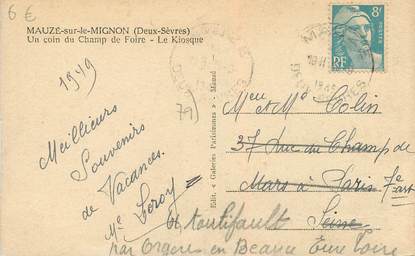 6€
MAUZÉ-sur-le-MIGNON (Deux-Sèvres)
Un coin du Champ de Foire - Le Kiosque
8F
POSTES
RF
1949
79)
Meilleurs
Souvenirs
de Vacances.
Me Leroy
Edit. « Galeries Parisiennes » - Mauzé
Meur & Me Colin
37 rue du Champ de
Mars à Paris 7e art
Seine
par Orgères en Beauce Eure Loire